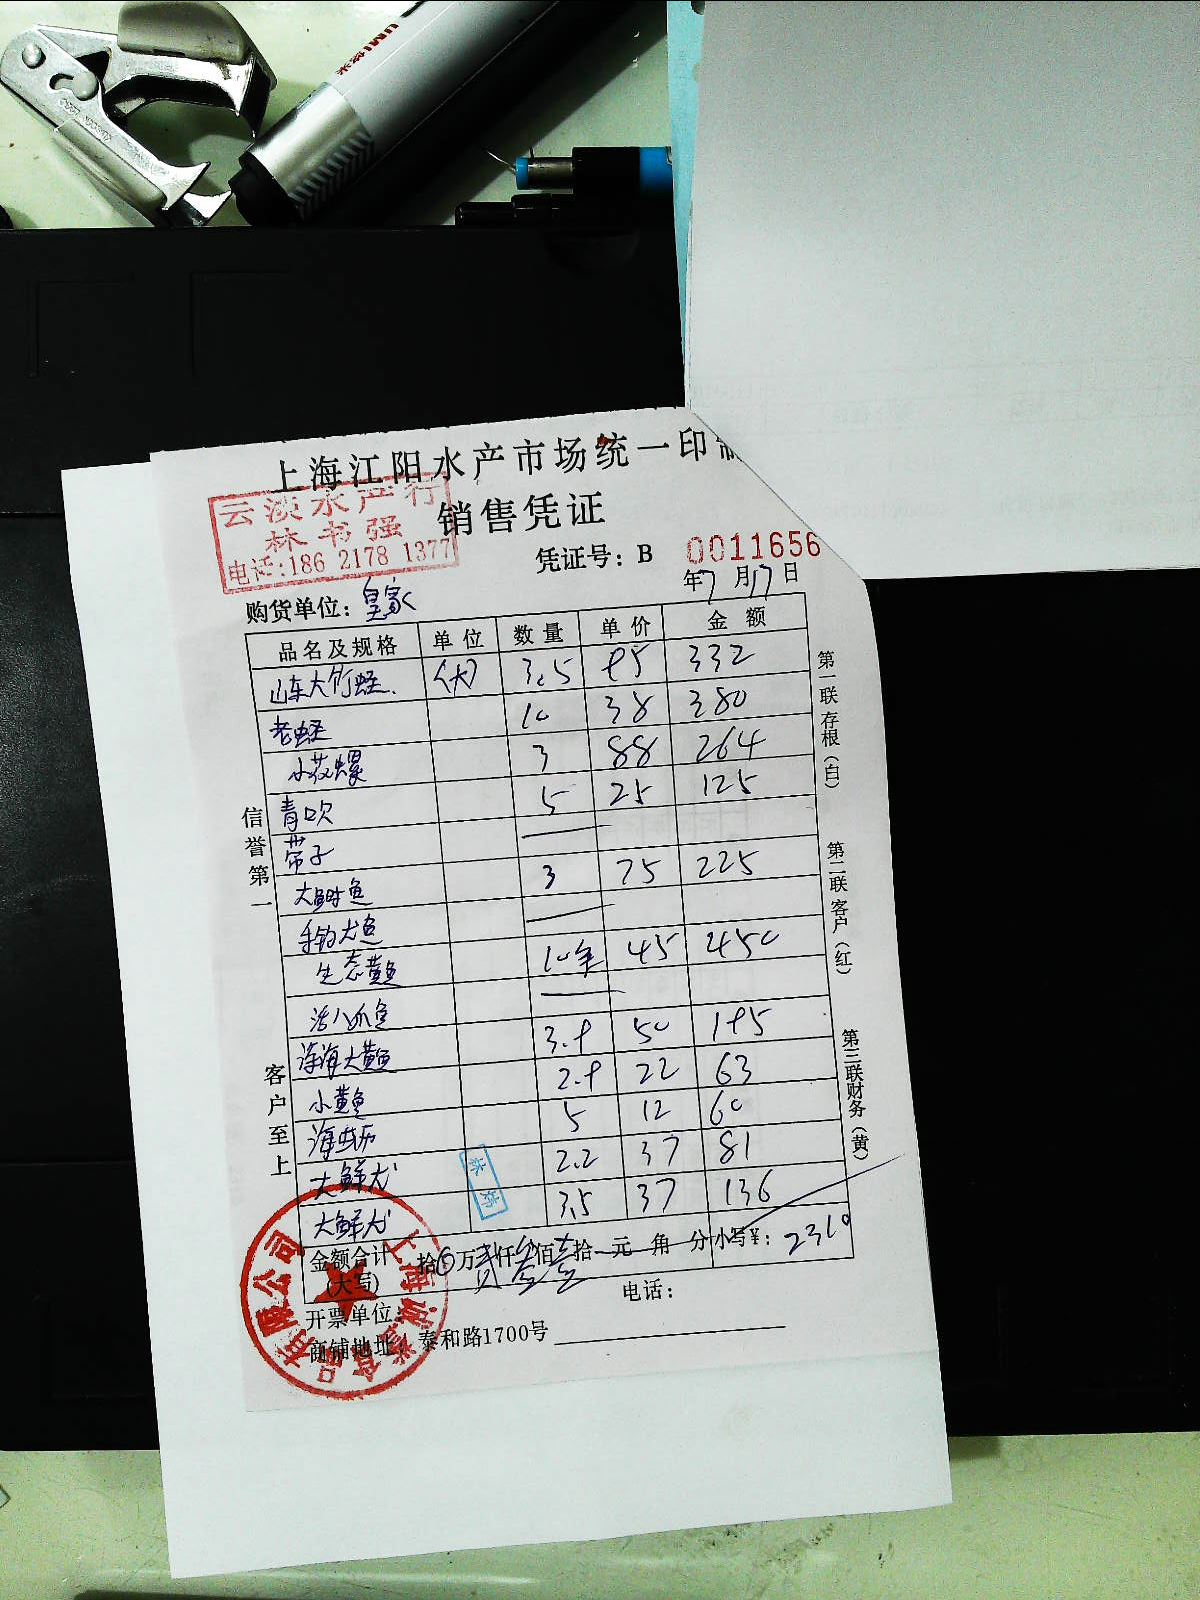 上海江阳水产市场统一印制
销售凭证
云淡水产行
林书强
电话:186 2178 1377
凭证号：B 0011656
年7月17日
购货单位：皇家
品名及规格 单位 数量 单价 金额
山东大竹蛏 (大) 3.5 95 332
老蛏 10 38 380
小花螺 3 88 264
青口 5 25 125
带子
大鲥鱼 3 75 225
手钓大鱼
生态黄鱼 10年 45 450
活八爪鱼
深海大黄鱼 3.9 50 195
小黄鱼 2.9 22 63
海蛎 5 12 60
大鲜尤 2.2 37 81
大鲜尤 3.5 37 136
金额合计(大写) 拾 万贰仟叁佰壹拾 元 角 分 小写¥：2310
开票单位：
电话：
商铺地址：泰和路1700号
信誉第一
客户至上
第一联 存根（白）
第二联 客户（红）
第三联 财务（黄）
UMI